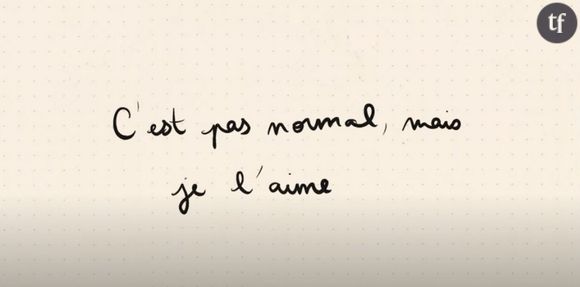 tf
C'est pas normal, mais
je l'aime